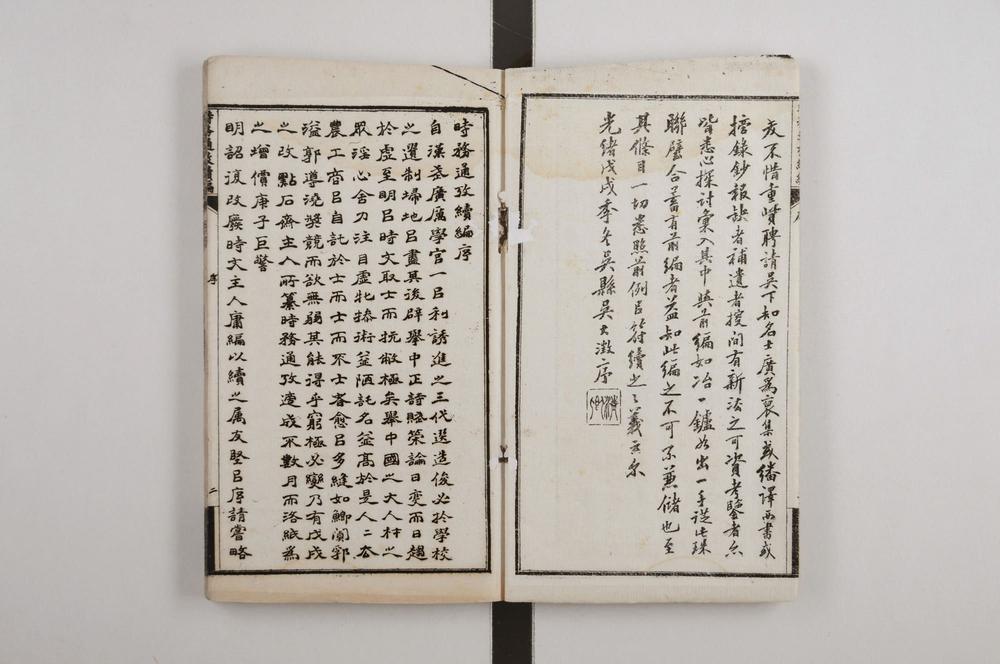 友不惜重貲聘請吳下知名士廣為裒集或繙譯西書或
摭錄鈔報缺者補遺者搜間有新法之可資考鑒者亦
皆悉心探討彙入其中與前編如冶一鑪如出一手從此珠
聯璧合蓄有前編者益知此編之不可不兼儲也至
其條目一切悉照前例㠯符續之之義云尔
光緒戊戌季冬吳縣吳大澂序
時務通攷續編序
自漢武廣厲學官一㠯利誘進之三代選造俊必於學校
之選制埽地㠯盡其後辟舉中正詩賦策論日變而日趨
於虛至明㠯時文取士而抏敝極矣舉中國之大人材之
眾淫心舍力注目虛牝捇術益陋託名益高於是人二本
農工商㠯自託於士而士而不士者愈㠯多縫如鯽闐郭
溢郭導澆獎競而欲無弱其能得乎窮極必變乃有戊戌
之改點石齋主人所纂時務通攷造成不數月而洛紙為
之增價庚子巨警
明詔復改廢時文主人庸編以續之屬友堅㠯序請嘗略
時務通攷續編
序
二